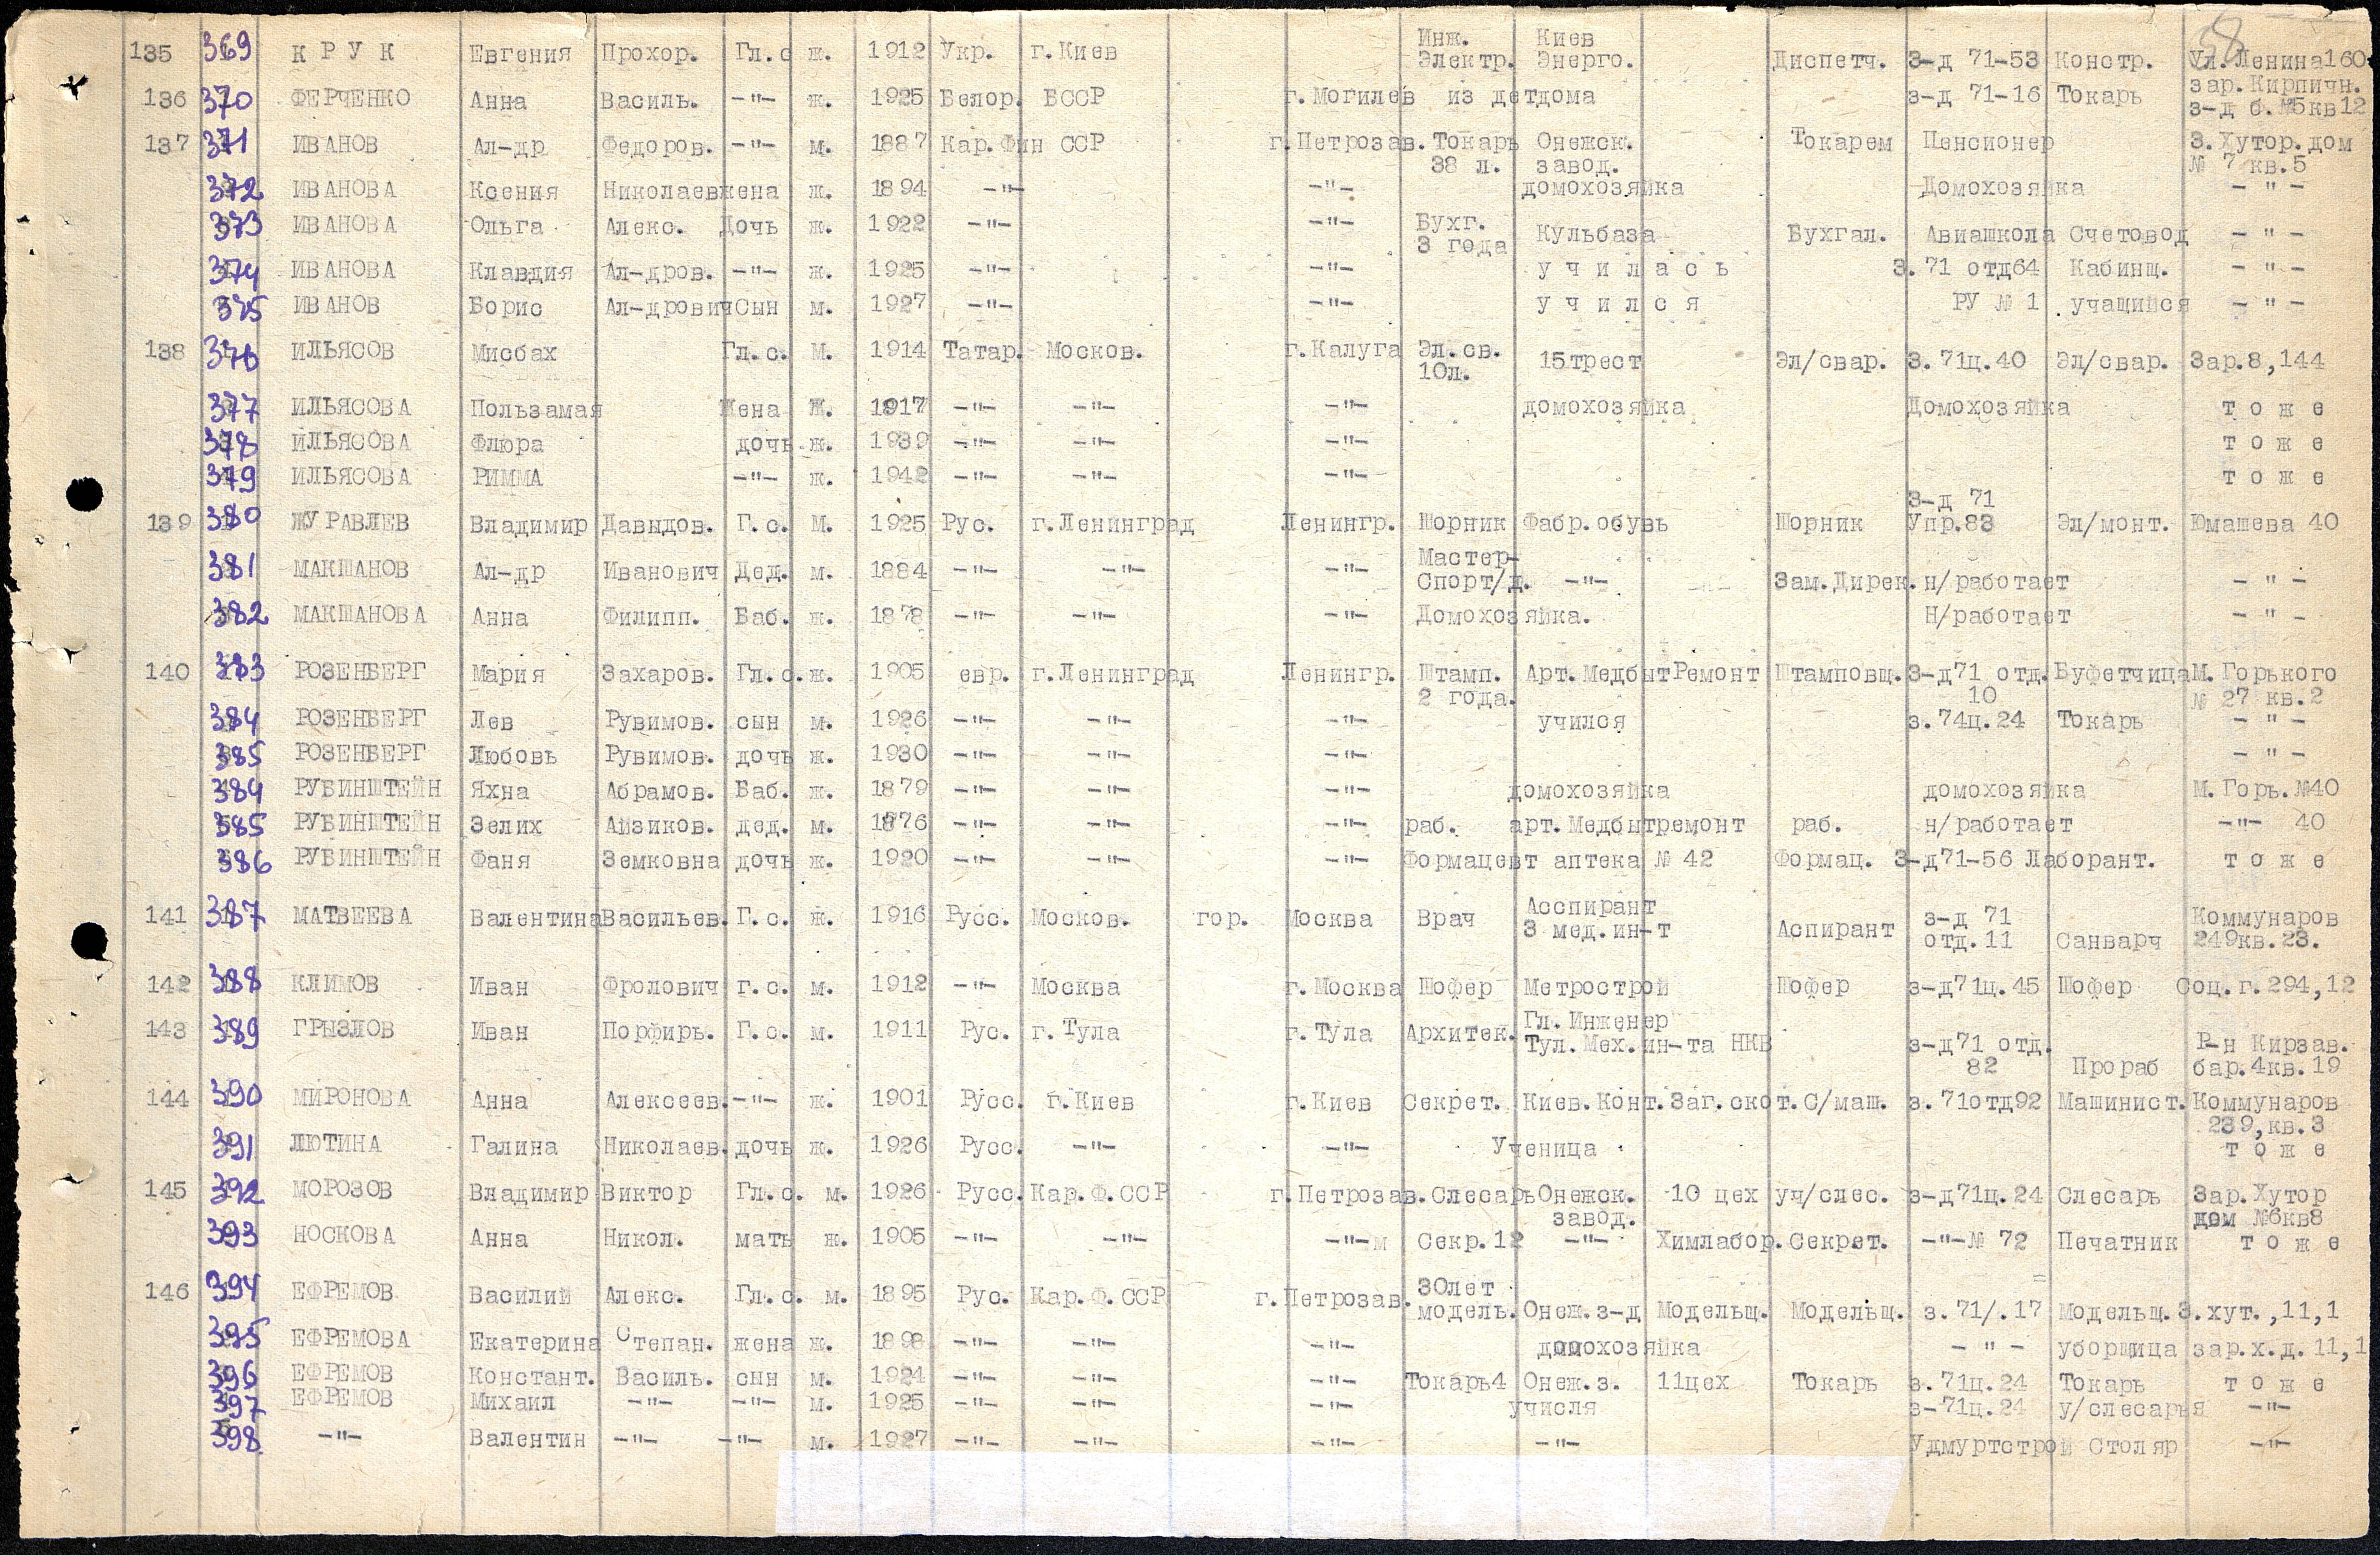 58
135 369 КРУК Евгения Прохор. Гл.с ж. 1912 Укр. г.Киев Инж. Электр. Киев Энерго. Диспетч. З-д 71-53 Констр. Ул.Ленина160
136 370 ФЕРЧЕНКО Анна Василь. -"- ж. 1925 Белор. БССР г.Могилев из детдома з-д 71-16 Токарь зар.Кирпичн. з-д б.№5кв12
137 371 ИВАНОВ Ал-др Федоров. -"- м. 1887 Кар.Фин ССР г.Петрозав. Токарь 38 л. Онежск. завод. Токарем Пенсионер З.Хутор.дом № 7 кв.5
372 ИВАНОВА Ксения Николаев жена ж. 1894 -"- -"- домохозяйка Домохозяйка -"-
373 ИВАНОВА Ольга Алекс. Дочь ж. 1922 -"- -"- Бухг. 3 года Кульбаза Бухгал. Авиашкола Счетовод -"-
374 ИВАНОВА Клавдия Ал-дров. -"- ж. 1925 -"- -"- училась З.71 отд64 Кабинщ. -"-
375 ИВАНОВ Борис Ал-дрович Сын м. 1927 -"- -"- учился РУ № 1 учащийся -"-
138 376 ИЛЬЯСОВ Мисбах Гл.с. М. 1914 Татар. Москов. г.Калуга Эл.св. 10л. 15трест Эл/свар. З.71ц.40 Эл/свар. Зар.8,144
377 ИЛЬЯСОВА Пользамая Жена Ж. 1917 -"- -"- -"- домохозяйка Домохозяйка тоже
378 ИЛЬЯСОВА Флюра дочь ж. 1939 -"- -"- -"- тоже
379 ИЛЬЯСОВА РИММА -"- ж. 1942 -"- -"- -"- тоже
139 380 ЖУРАВЛЕВ Владимир Давыдов. Г.с. М. 1925 Рус. г.Ленинград Ленингр. Шорник Фабр.обувь Шорник З-д 71 Упр.83 Эл/монт. Юмашева 40
381 МАКШАНОВ Ал-др Иванович Дед. м. 1884 -"- -"- -"- Мастер- Спорт/д. -"- Зам.Дирек. н/работает -"-
382 МАКШАНОВА Анна Филипп. Баб. ж. 1878 -"- -"- -"- Домохозяйка. Н/работает -"-
140 383 РОЗЕНБЕРГ Мария Захаров. Гл.с. ж. 1905 евр. г.Ленинград Ленингр. Штамп. 2 года. Арт.МедбытРемонт Штамповщ. З-д71 отд. 10 Буфетчица М.Горького № 27 кв.2
384 РОЗЕНБЕРГ Лев Рувимов. сын м. 1926 -"- -"- -"- учился з.74ц.24 Токарь -"-
385 РОЗЕНБЕРГ Любовь Рувимов. дочь ж. 1930 -"- -"- -"- -"-
384 РУБИНШТЕЙН Яхна Абрамов. Баб. ж. 1879 -"- -"- -"- домохозяйка домохозяйка М.Горь.№40
385 РУБИНШТЕЙН Зелих Айзиков. дед. м. 1876 -"- -"- -"- раб. арт.Медбытремонт раб. н/работает -"- 40
386 РУБИНШТЕЙН Фаня Земковна дочь ж. 1920 -"- -"- -"- Формацевт аптека № 42 Формац. З-д71-56 Лаборант. тоже
141 387 МАТВЕЕВА Валентина Васильев. Г.с. ж. 1916 Русс. Москов. гор. Москва Врач Асспирант 3 мед.ин-т Аспирант з-д 71 отд.11 Санварч Коммунаров 249кв.23.
142 388 КЛИМОВ Иван Фролович г.с. м. 1912 -"- Москва г.Москва Шофер Метрострой Шофер з-д71ц.45 Шофер Соц.г.294,12
143 389 ГРЫЗЛОВ Иван Порфирь. Г.с. м. 1911 Рус. г.Тула г.Тула Архитек. Гл.Инженер Тул.Мех.ин-та НКВ з-д71 отд. 82 Прораб Р-н Кирзав. бар.4кв.19
144 390 МИРОНОВА Анна Алексеев. -"- ж. 1901 Русс. г.Киев г.Киев Секрет. Киев.Конт.Заг.скот. С/маш. з.71отд92 Машинист. Коммунаров 239,кв.3
391 ЛЮТИНА Галина Николаев. дочь ж. 1926 Русс. -"- -"- Ученица тоже
145 392 МОРОЗОВ Владимир Виктор Гл.с. м. 1926 Русс. Кар.Ф.ССР г.Петрозав. Слесарь Онежск. завод. 10 цех уч/слес. з-д71ц.24 Слесарь Зар.Хутор дом №6кв8
393 НОСКОВА Анна Никол. мать ж. 1905 -"- -"- -"-м Секр.12 -"- Химлабор. Секрет. -"-№ 72 Печатник тоже
146 394 ЕФРЕМОВ Василий Алекс. Гл.с. м. 1895 Рус. Кар.Ф.ССР г.Петрозав. 30лет модель. Онеж.з-д Модельщ. Модельщ. з.71/.17 Модельщ. З.хут.,11,1
395 ЕФРЕМОВА Екатерина Степан. жена ж. 1898 -"- -"- -"- домохозяйка -"- уборщица зар.х.д.11,1
396 ЕФРЕМОВ Констант. Василь. сын м. 1924 -"- -"- -"- Токарь4 Онеж.з. 11цех Токарь з.71ц.24 Токарь тоже
397 ЕФРЕМОВ Михаил -"- -"- м. 1925 -"- -"- -"- учисля з-71ц.24 у/слесарья -"-
398 -"- Валентин -"- -"- м. 1927 -"- -"- -"- -"- Удмуртстрой Столяр -"-